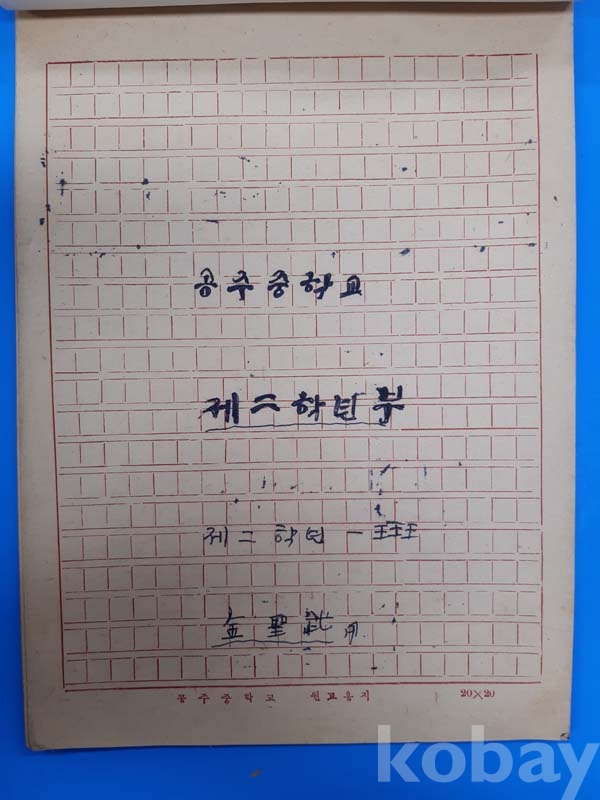 공주중학교
제二학년부
제二학년 一
金聖 用.
공주중학교 원고용지 20×20
kobay